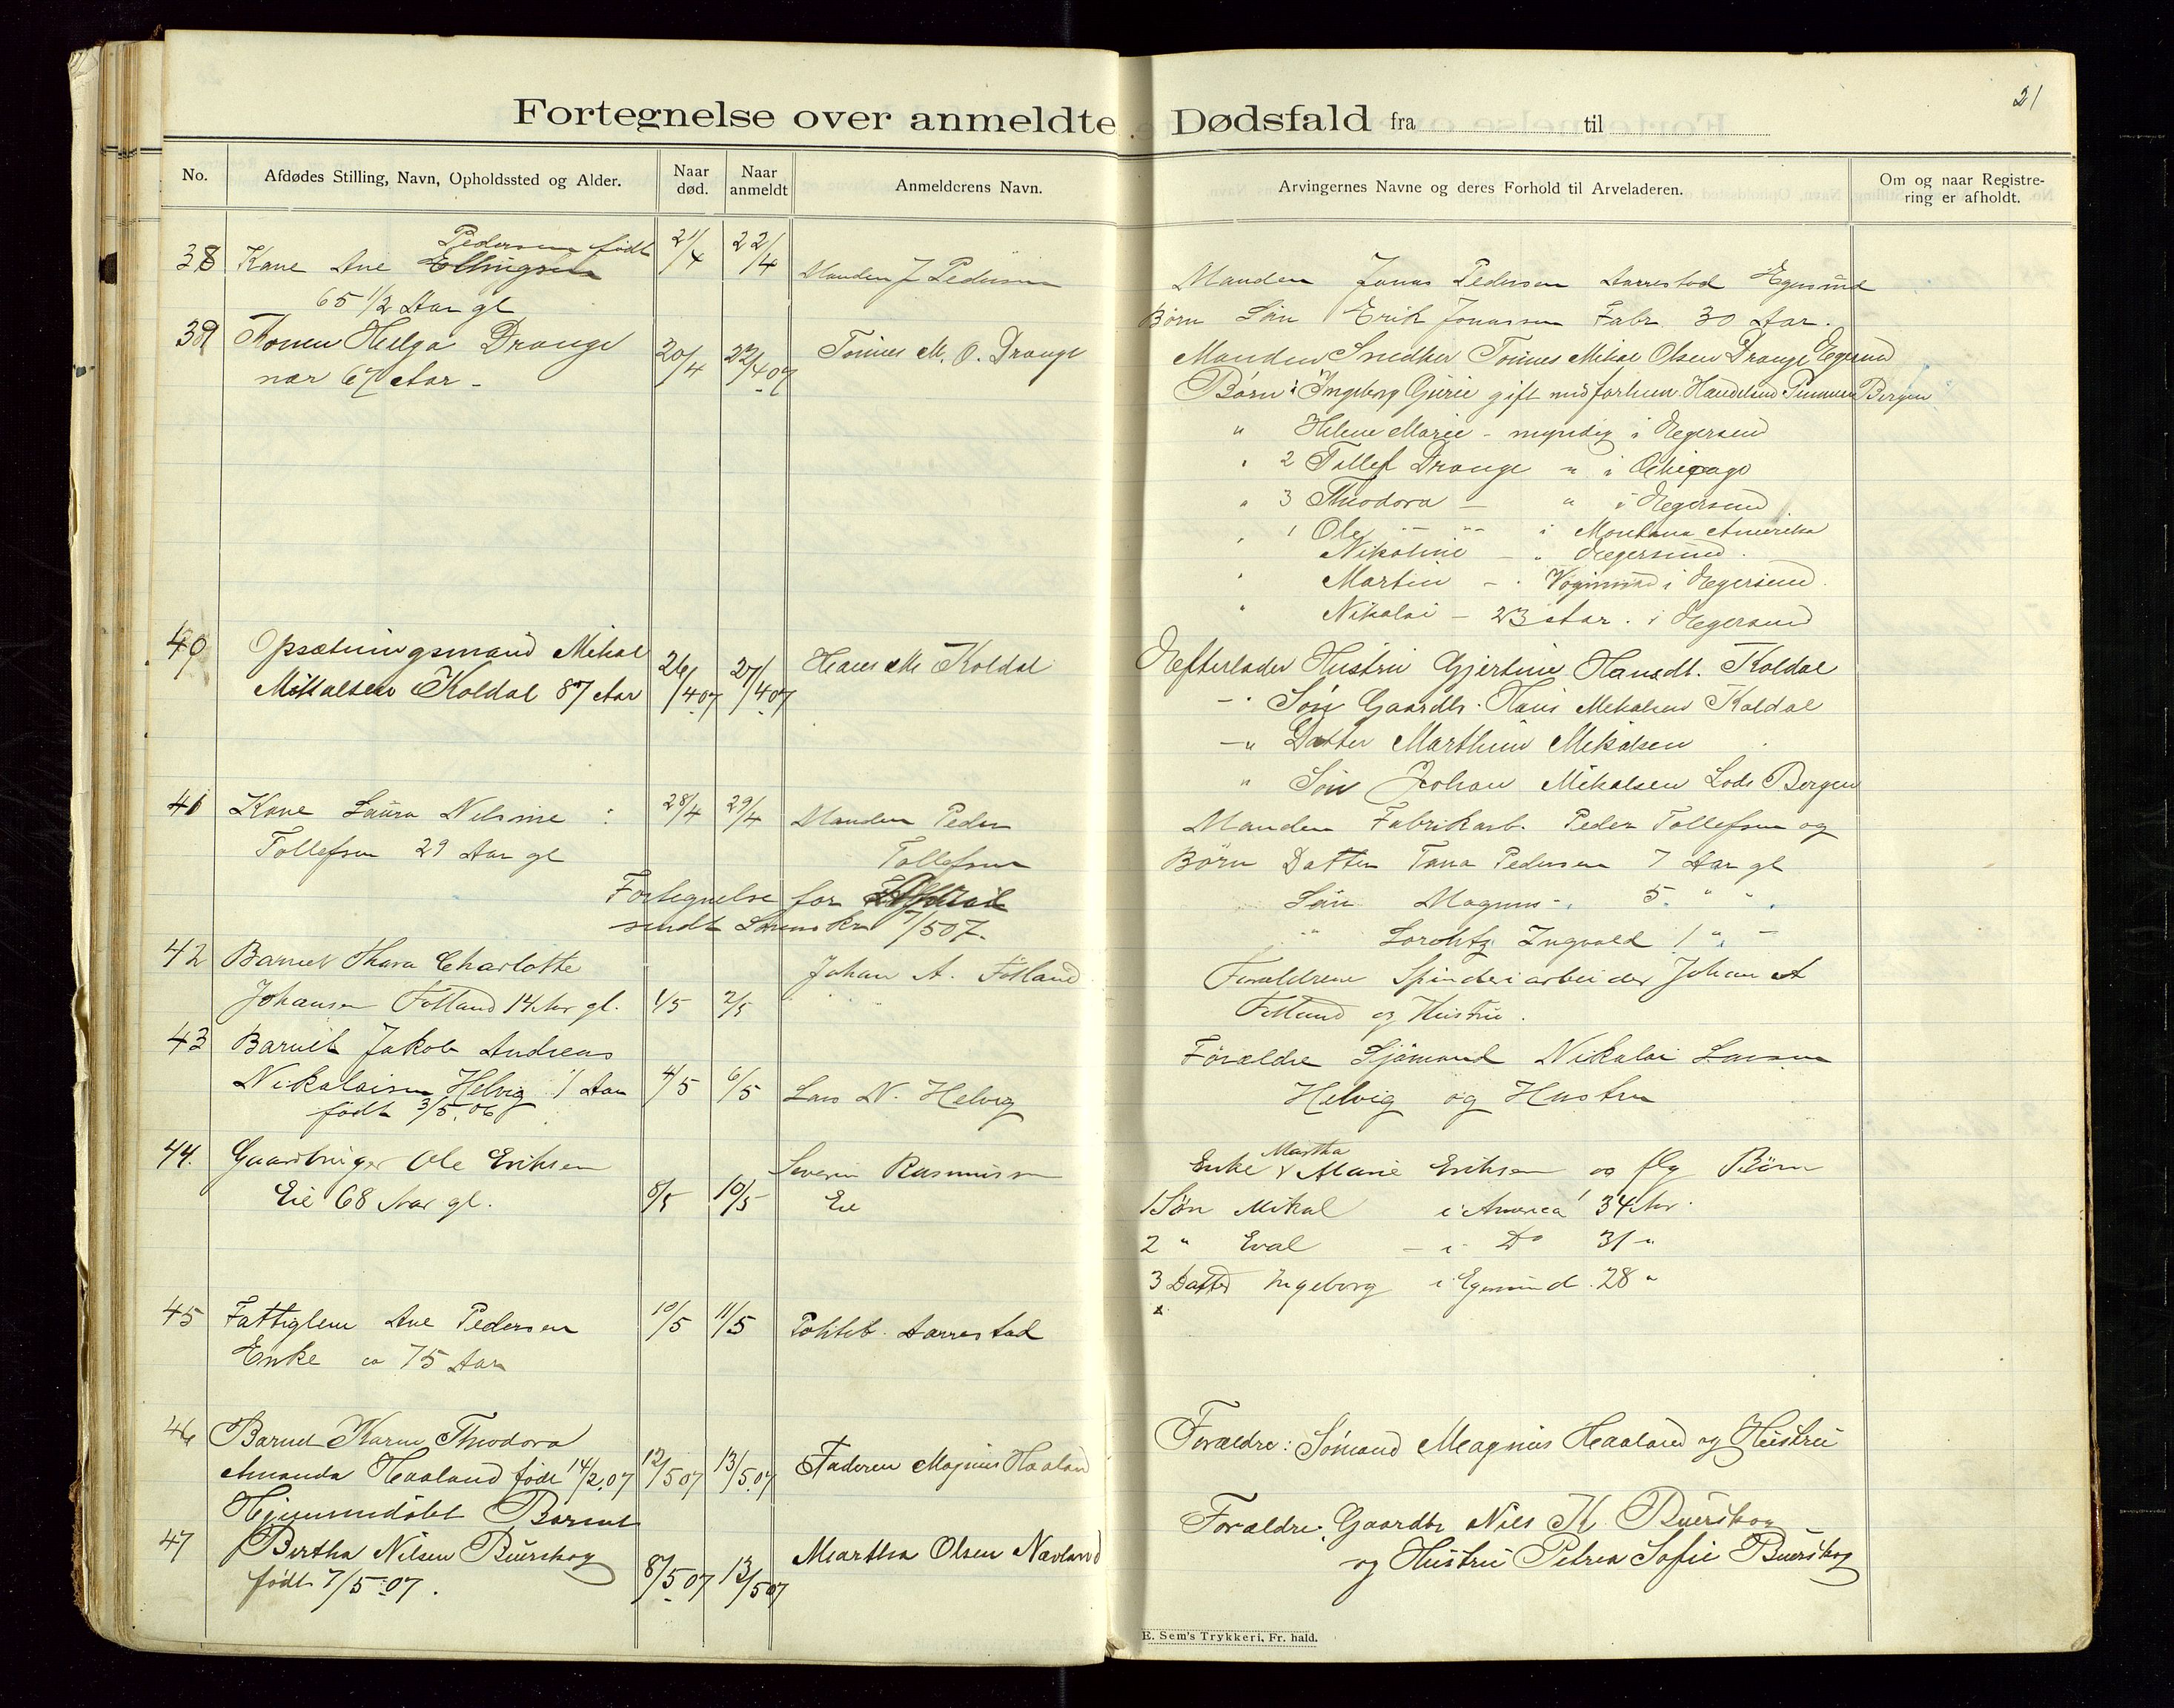 21
Fortegnelse over anmeldte Dødsfald fra til
No. Afdødes Stilling, Navn, Opholdssted og Alder. Naar død. Naar anmeldt Anmelderens Navn. Arvingernes Navne og deres Forhold til Arveladeren. Om og naar Registrering er afholdt.
Pedersen født
38 Kone Ane Ellingsen 21/4 22/4 Manden J Pedersen Manden Jonas Pedersen Aarrestad Egersund
65 1/2 Aar gl Børn Søn Erik Jonassen Fabr. 30 Aar.
39 Konen Helga Drange 20/4 22/4 07 Tønnes M. O. Drange Manden Snedker Tønnes Mikal Olsen Drange Egersund
nær 67 Aar - Børn: Ingeborg Gurie gift med forhen. Handelsmd Bergen
" Helene Marie - myndig i Egersund
" 2 Tollef Drange " i Chicago
" 3 Theodora - " i Egersund
" 1 Ole - " - i Montana Amerika
Nikoline - " Egersund.
" Martin - " i Egersund.
" Nikolai - 23 Aar. i Egersund
40 Opsætningsmand Mikal 26/4 07 27/4 07 Hans M Koldal Efterlader Hustru Gjertine Hansdt. Koldal
Mikalsen Koldal 87 Aar - " Søn Gaardbr. Hans Mikalsen Koldal
- " Datter Marthine Mikalsen
" Søn Johan Mikalsen Lods Bergen
41 Kone Laura Nelsine 28/4 29/4 Manden Peder Manden Fabrikarb. Peder Tollefsen og
Tollefsen 29 Aar gl Tollefsen Børn Datter Tana Pedersen 7 Aar gl
Fortegnelse for Søn Magnus - " 5 " "
sendt 7/5 07. " Lorentz Ingvald 1 " -
42 Barnet Thara Charlotte Johan A. Fotland Forældrene Spinderiarbeider Johan A
Johansen Fotland 14 Aar gl. 1/5 2/5 Fotland og Hustru.
43 Barnet Jakob Andreas Forældre Sjømand Nikolai Larsen
Nikolaisen Helvig 1 Aar 4/5 6/5 Lars N. Helvig Helvig og Hustru
født 3/5.06
44. Gaardbruger Ole Eriksen Severin Rasmussen Enke Martha Marie Eriksen og flg Børn
Eie 68 Aar gl. 8/5 10/5 Eie 1 Søn Mikal i America 34 Aar.
2 " Eval - i Do 31 "
3 Datter Ingeborg i Egersund. 28 "
45 Fattiglem Ane Pedersen 10/5 11/5 Politib. Aarrestad
Enke ca 75 Aar
46 Barnet Karen Theodora Forældre: Sømand Magnus Haaland og Hustru
Amanda Haaland født 14/2.07 12/5 07 13/5.07 Faderen Magnus Haaland
Hjemmedøbt Barnet Forældre: Gaardbr Nils H. Buerskog
47 Bertha Nilsen Buerskog 8/5 07 13/5 07 Martha Olsen Nævland og Hustru Petrea Sofie Buerskog
født 7/5 07.
E. Sem's Trykkeri, Fr. hald.